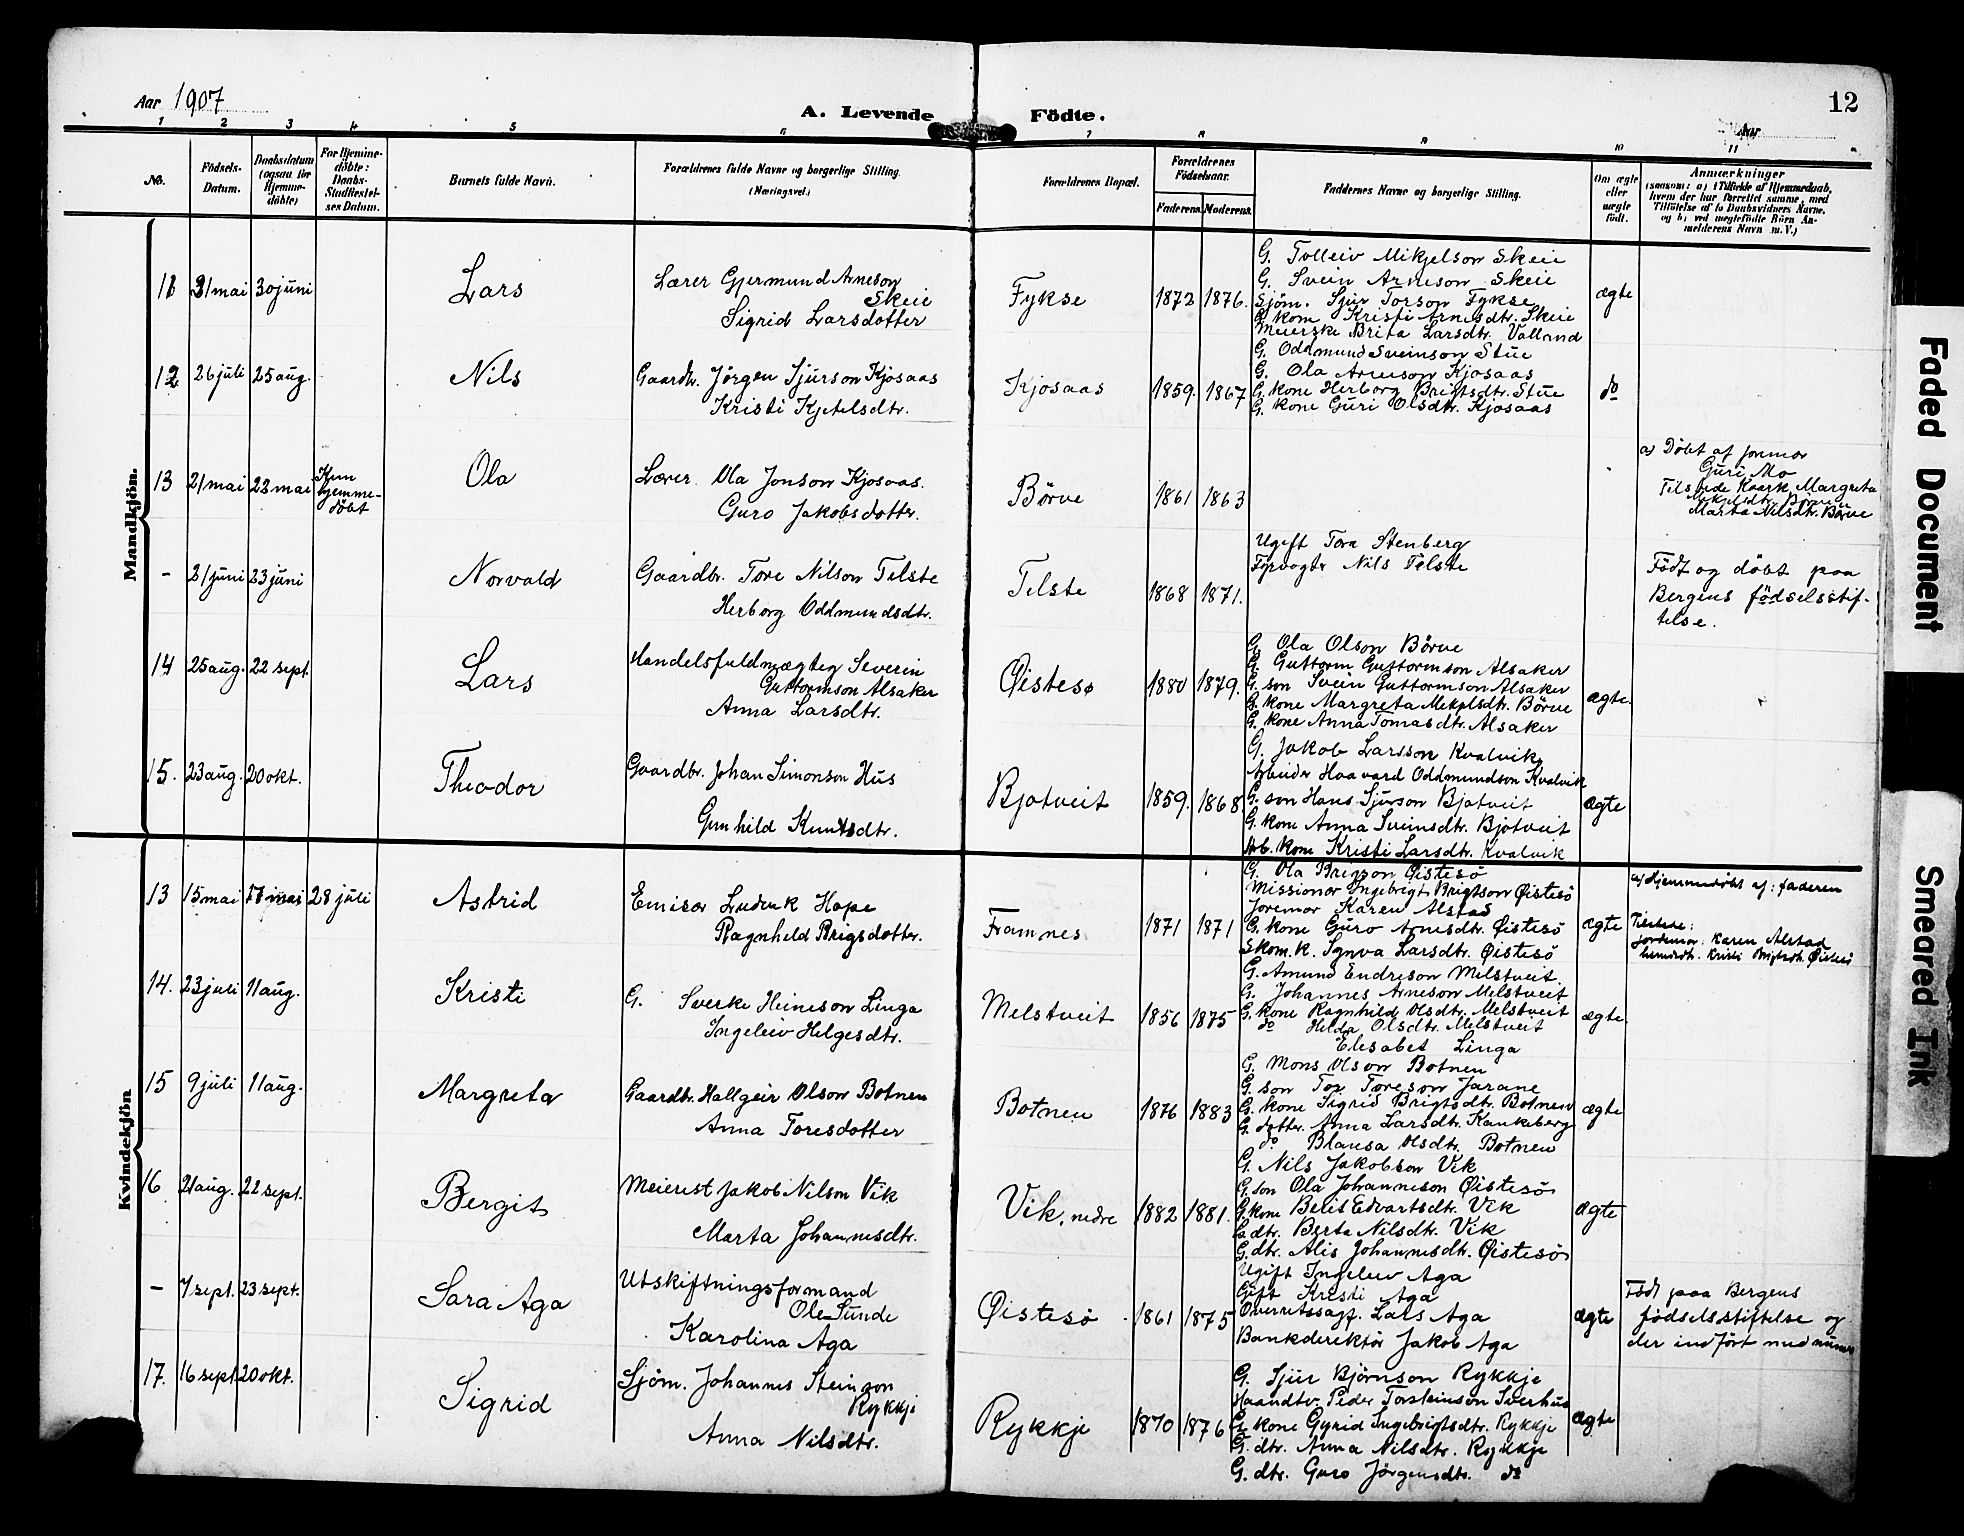 Aar 1907
A. Levende Födte.
12
Aar
1 2 3 4 5 6 7 8 9 10 11
No.
Födsels-Datum.
Daabsdatum (ogsaa for Hjemme-döbte)
For Hjemme-döbte: Daabs-Stadfæstel-ses Datum.
Barnets fulde Navn.
Forældrenes fulde Navne og borgerlige Stilling. (Næringsvei.)
Forældrenes Bopæl.
Forældrenes Födselsaar.
Faderens. Moderens.
Faddernes Navne og borgerlige Stilling.
Om ægte eller uægte födt.
Anmærkninger
(saasom: a) i Tilfælde af Hjemmedaab, hvem der har forrettet samme, med Tilföielse af to Daabsvidners Navne, og b) ved uægtefödte Börn An-melderens Navn m. V.)
Mandkjön.
11 31 mai 30 juni Lars
Lærer Gjermund Arneson Skeie
Sigrid Larsdotter
Fykse 1872 1876.
G. Tolleiv Mikjelson Skeie
G. Svein Arneson Skeie
Sjöm. Sjur Torson Fykse
G. kone Kristi Arnesdtr. Skeie
Meierske Brita Larsdtr. Valland
ægte
12 26 juli 25 aug. Nils
Gaardbr. Jörgen Sjurson Kjosaas
Kristi Kjetelsdtr.
Kjosaas 1859. 1867
G. Oddmund Sveinson Stue
G. Ola Arneson Kjosaas
G. kone Herborg Brigtsdtr. Stue
G. kone Guri Olsdtr. Kjosaas
do
13 21 mai 22 mai Kun hjemme-döbt Ola
Lærer Ola Jonson Kjosaas.
Guro Jakobsdotter.
Börve 1861 1863
a) Döbt af jormor
Guri Mo
Tilstede Margreta
Mikjelsdtr. Börve
Marta Nilsdtr. Börve
- 21 juni 23 juni Norvald
Gaardbr. Tore Nilson Telste
Herborg Oddmundsdtr.
Telste 1868 1871.
Ugift Tora Stenberg
Fyrvogter Nils Telste
Födt og döbt paa
Bergens födselsstif-
telse.
14 25 aug. 22 sept. Lars
Handelsfuldmægtig Severin
Guttormson Alsaker
Anna Larsdtr.
Øistesø 1880 1879.
G. Ola Olson Börve
G. Guttorm Guttormson Alsaker
G. son Svein Guttormson Alsaker
G. kone Margreta Mekjelsdtr. Börve
G. kone Anna Tomasdtr. Alsaker
ægte.
15. 23 aug. 20 okt. Theodor
Gaardbr. Johan Simonson Hus
Gunhild Knutsdtr.
Bjotveit 1859. 1868
G. Jakob Larsson Kvalvik
Arbeider Haavard Oddmundson Kvalvik
G. son Hans Sjurson Bjotveit
G. kone Anna Sveinsdtr. Bjotveit
Arb. kone Kristi Larsdtr. Kvalvik
ægte
Kvindekjön
13 15 mai 17 mai 28 juli Astrid
Emisær Ludvik Hope
Ragnheld Brigsdotter.
Framnes 1871 1871
G. Ola Brigson Øistesö
Missionær Ingebrigt Brigtson Øistesö
Joremor Karen Alstad
G. kone Guro Arnesdtr. Øistesö
Skom. k. Synva Larsdtr. Øistesö
ægte
a) Hjemmedöbt af: faderen
Tilstede:
Jordemor: Karen Alstad
Kristi Brigtsdtr. Øistesö
14. 23 juli 11 aug. Kristi
G. Sverke Heineson Linga
Ingeleiv Helgesdtr.
Melstveit 1856 1875
G. Amund Endreson Melstveit
G. Johannes Arneson Melstveit
G. kone Ragnhild Olsdtr. Melstveit
do Helda Olsdtr. Melstveit
Elesabet Linga
ægte
15 9 juli 11 aug. Margreta
Gaardbr. Hallgeir Olson Botnen
Anna Toresdotter
Botnen 1876 1883
G. Mons Olson Botnen
G. son Tor Toreson Jarane
G. kone Sigrid Brigtsdtr. Botnen
G. dotter Anna Larsdtr. Kankeberg
do Blansa Olsdtr. Botnen
ægte
16 21 aug. 22 sept. Bergit
Meierist Jakob Nilson Vik
Marta Johannesdtr.
Vik, nedre 1882 1881.
G. Nils Jakobson Vik
G. son Ola Johanneson Øistesö
G. kone Berit Edvartsdtr. Vik
G. dtr. Berta Nilsdtr. Vik
G. dtr. Alis Johannesdtr. Øistesö
ægte
- 7 sept. 23 sept. Sara Aga
Utskiftningsformand
Ole Sunde
Karolina Aga
Øistesö 1861 1875
Ugift Ingeleiv Aga
Gift Kristi Aga
Overretssagf. Lars Aga
Bankdirektör Jakob Aga
ægte
Födt paa Bergens
födselsstiftelse og
der indfört med numer
17. 16 sept. 20 okt. Sigrid
Sjöm. Johannes Steinson
Rykkje
Anna Nilsdtr.
Rykkje 1870 1876
G. Sjur Björnson Rykkje
Haandtv. Peder Torsteinson Sverhus
G. kone Gyrid Ingebrigtsdtr. Rykkje
G. dtr. Anna Nilsdtr. Rykkje
G. dtr. Guro Jörgensdtr. do
ægte
Faded Document
Smeared Ink